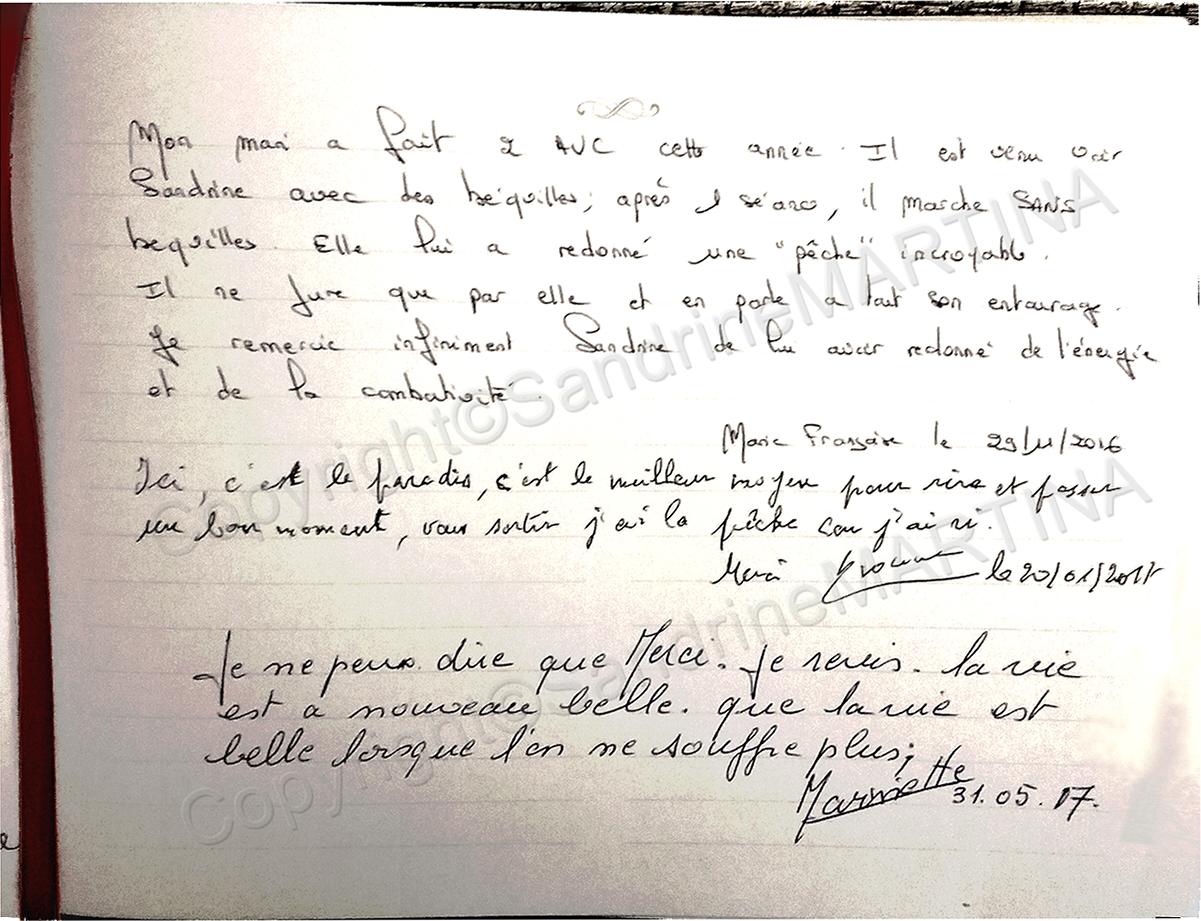 Mon mari a fait 2 AVC cette année. Il est venu voir
Sandrine avec des béquilles; après 1 séance, il marche SANS
bequilles. Elle lui a redonné une "pêche" incroyable.
Il ne jure que par elle et en parle a tout son entourage.
Je remercie infiniment Sandrine de lui avoir redonné de l'énergie
et de la combativité.
Marie Françoise le 29/11/2016
Ici, c'est le paradis, c'est le meilleur moyen pour rire et passer
un bon moment, vous sortir j'ai la pêche car j'ai ri.
Merci le 20/01/2017
Je ne peux dire que Merci. Je revis. la vie
est a nouveau belle. que la vie est
belle lorsque l'on ne souffre plus;
Marinette
31.05.17.
Copyright©SandrineMARTINA
Copyright©SandrineMARTINA